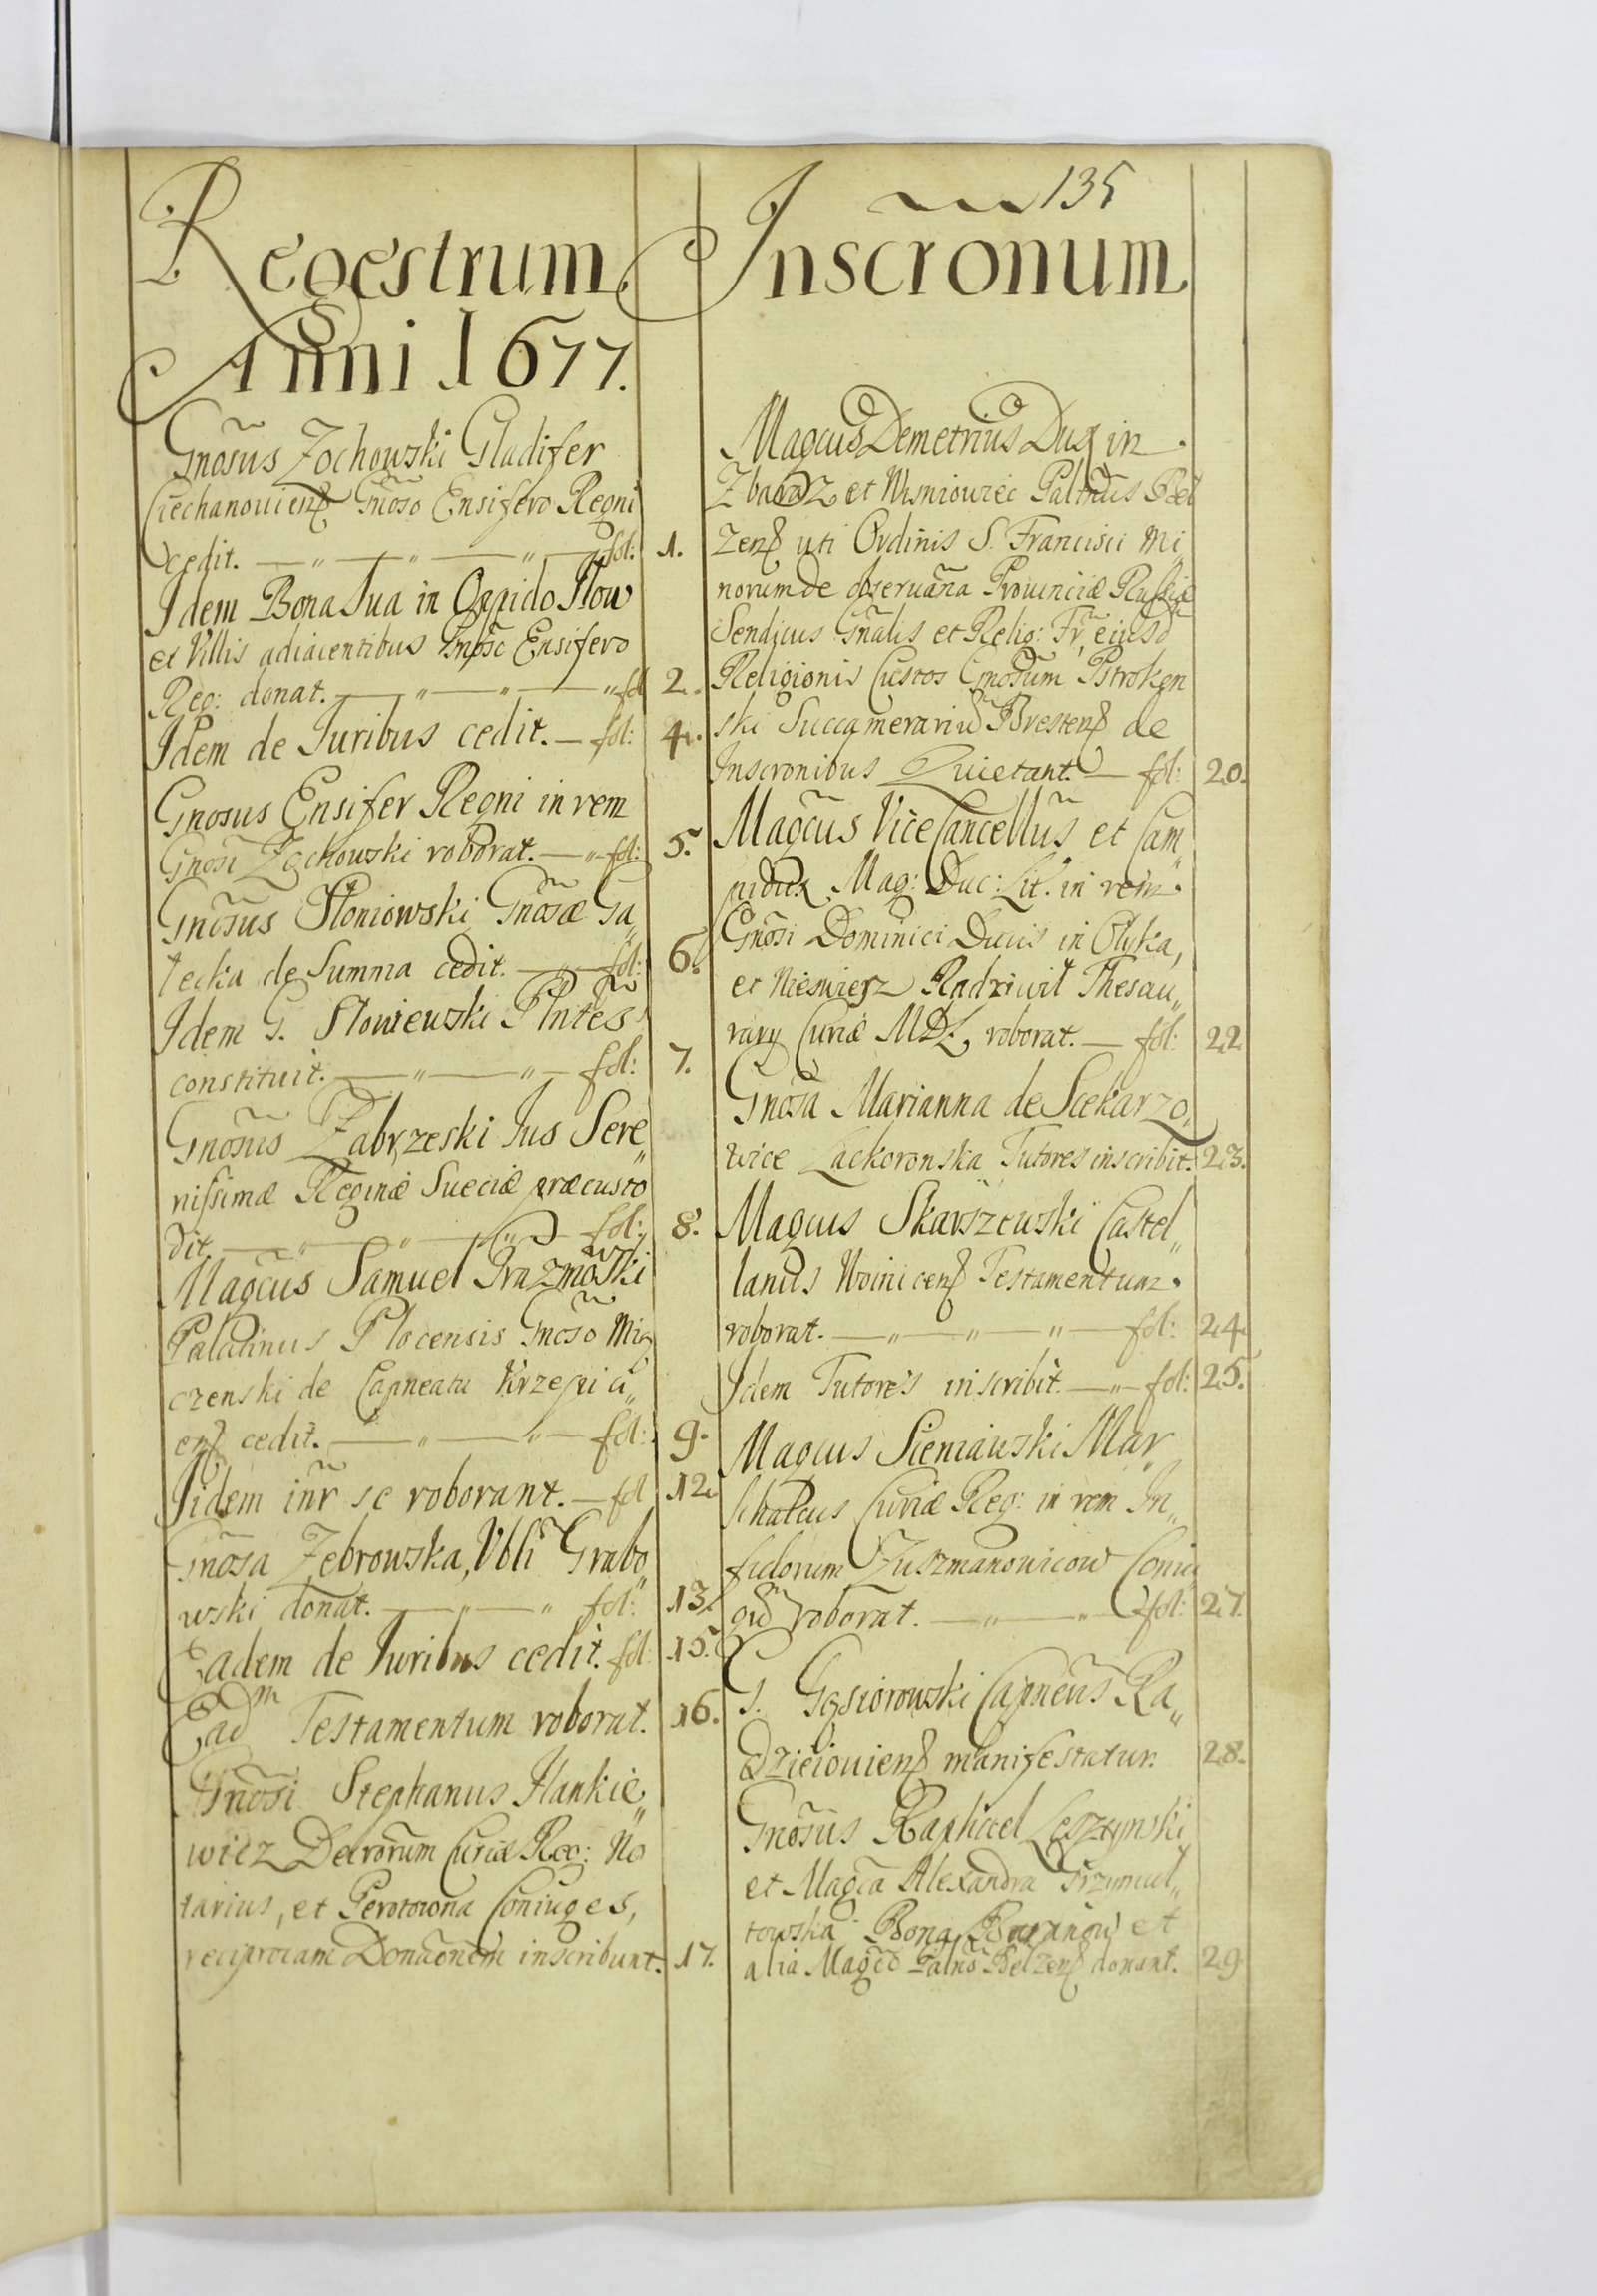 135
Regestrum Inscronum
Anni 1677.
Gnosus Zochowski Gladifer
Ciechanouiens Gnoso Ensifero Regni
cedit. fol: 1.
Idem Bona Sua in Oppido Iłow
et Villis adiacentibus Ensifero
Reg: donat. fol 2.
Idem de Iuribus cedit. fol: 4.
Gnosus Ensifer Regni in rem
Gnosi Zochowski roborat. fol: 5.
Gnosus Słoniowski Gnosæ Ga„
łecka de Summa cedit. fol: 6.
Idem G. Słoniewski Plntes
constituit. fol: 7.
Gnosus Zabrzeski Ius Sere„
nissimæ Reginæ Sueciæ præcusto
dit. fol: 8.
Magcus Samuel Prazmowski
Palatinus Plocensis Gnoso Mią
czenski de Capneatu Krzepici„
ens cedit. fol: 9.
Iidem inr se roborant. fol 12.
Gnosa Zebrowska, Vbli Grabo„
wski donat. fol: 13.
Eadem de Iuribus cedit. fol: 15.
Eadm Testamentum roborat. 16.
Gnosi Stephanus Hankie„
wicz Decrorum Curiæ Reg: No
tarius, et Coniuges,
reciprocam Donaonem inscribunt. 17.
Magcus Demetrius Dux in
Zbaraz et Wisniowiec Paltnus Bel
zens uti Ordinis S. Francisci Mi
norum de obseruana Prouinciæ Russiæ
Sendicus Gnalis et Relig: Fr, eiusd
Religionis Custos Gnosum Pstroken
ski Succamerariu Brestens de
Inscronibus Quietant. fol: 20.
Magcus ViceCancellus et Cam„
pidux Mag: Duc: Lit. in rem
Gnosi Dominici Ducis in Olyka,
et Nieswierz Radziwił Thesau„
rary Curiæ MDL, roborat. fol: 22
Gnosa Marianna de Siekarzo„
wice Lackoronska Tutores inscribit. 23.
Magcus Skarszewski Castel„
lanus Woinicens Testamentum
roborat. fol: 24
Idem Tutores inscribit. fol: 25.
Magcus Sieniawski Mar„
schalcus Curiæ Reg: in rem In„
fidorum Zuszmanowicow Coniu
gu roborat. fol: 27.
G. Gąsiorowski Capneus Ra„
dzieiouiens manifestatur. 28.
Gnosus Raphael Leszczynski
et Magca Alexandra Grzymuł„
towska Bona Baranow et
alia Magco Palno Belzens donant. 29